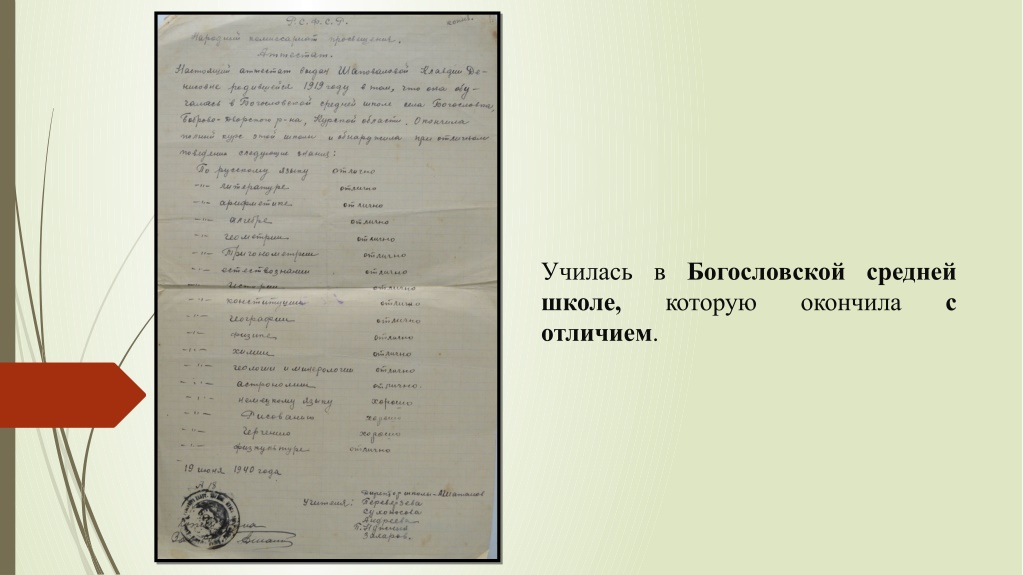 Р.С.Ф.С.Р.
копия.
Народный комиссариат просвещения.
Аттестат.
Настоящий аттестат выдан Шаповаловой Клавдии Де-
нисовне родившейся 1919 году в том, что она обу-
чалась в Богословской средней школе села Богословки,
Боброво-Дворского р-на, Курской области. Окончила
полный курс этой школы и обнаружила при отличном
поведении следующие знания:
По русскому языку отлично
-"- литературе отлично
-"- арифметике отлично
-"- алгебре отлично
-"- геометрии отлично
-"- Тригонометрии отлично
-"- естествознанию отлично
-"- истории отлично
-"- конституции отлично
-"- географии отлично
-"- физике отлично
-"- химии отлично
-"- геологии и минералогии отлично
-"- астрономии отлично
-"- немецкому языку хорошо
-"- Рисованию хорошо
-"- Черчению хорошо
-"- физкультуре отлично
19 июня 1940 года
№ 13
Директор школы-
Учителя: Переверзева
Сухоносова
Андреева
Захаров.
Училась в Богословской средней
школе, которую окончила с
отличием.